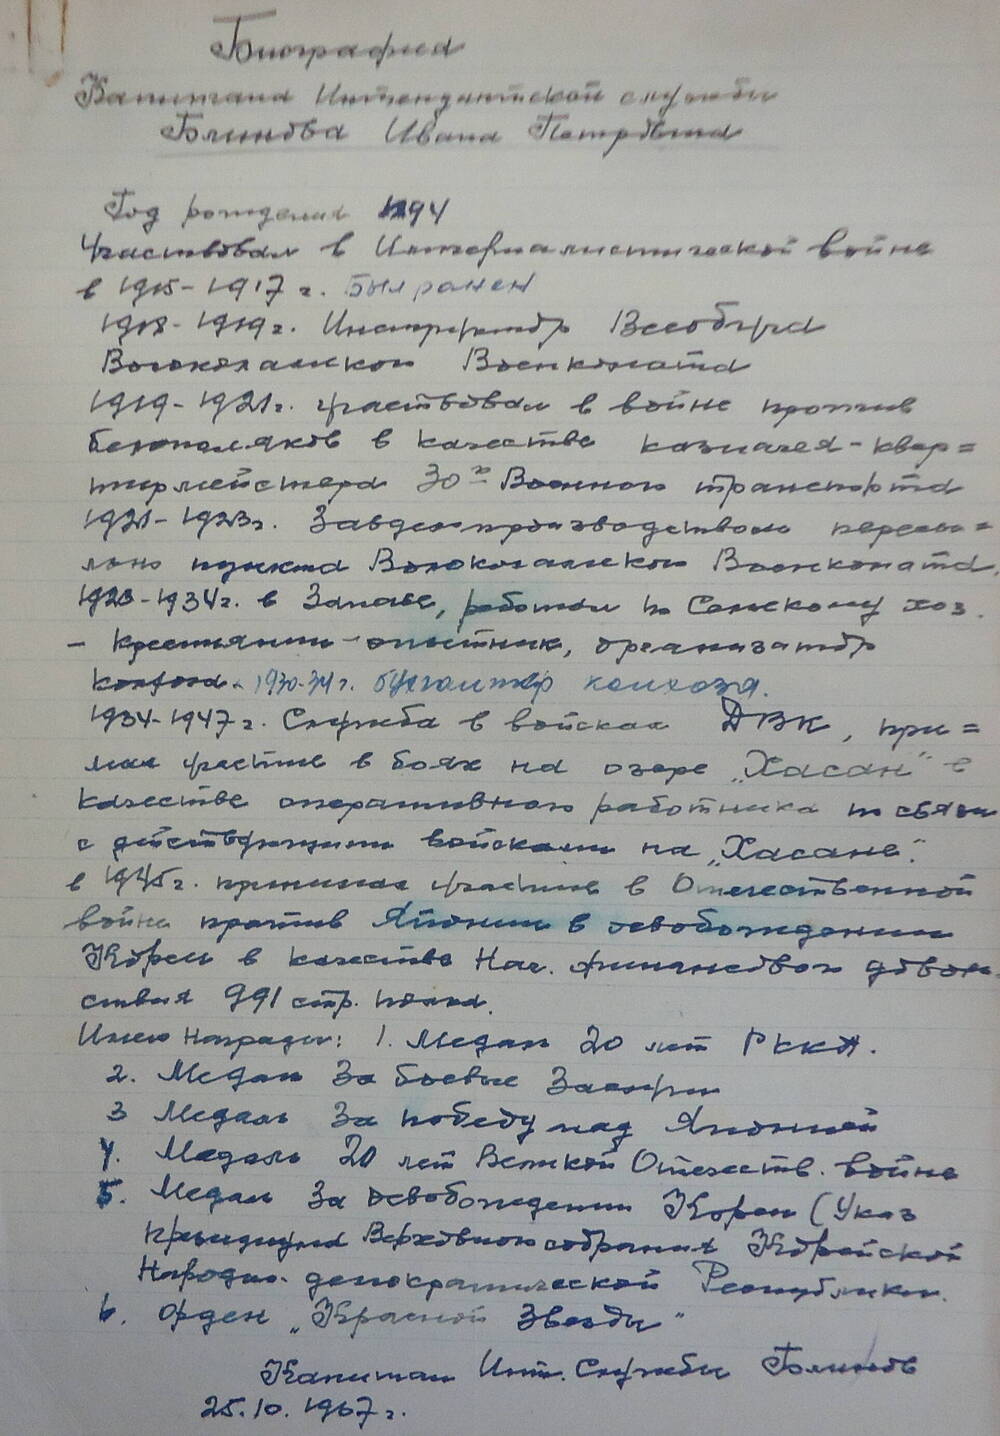 Биография
Капитана Интендантской службы
Блинова Ивана Петровича
Год рождения 1894
Участвовал в Империалистической войне
в 1915-1917 г. Был ранен
1918-1919г. Инструктор Всеобуча
Волоколамского Военкомата
1919-1921г. участвовал в войне против
белополяков в качестве казначея-квар=
тирмейстера 30го Военного транспорта
1921-1923г. Завделопроизводством пересы=
лоно пункта Волоколамского Военкомата.
1923-1934г. в Запасе, работал по Сельскому хоз.
- крестьянин-опытник, организатор
колхоза. 1930-34г. бухгалтер колхоза.
1934-1947г. Служба в войсках ДВК, при=
мал участие в боях на озере „Хасан" в
качестве оперативного работника по связи
с действующими войсками на „Хасане".
в 1945г. принимал участие в Отечественной
войне против Японии в освобождении
Кореи в качестве Нач. финансового доволь-
ствия 991 стр. полка.
Имею Награды: 1. Медаль 20 лет РККА.
2. Медаль За боевые Заслуги
3 Медаль За победу над Японией
4. Медаль 20 лет Великой Отечеств. войне
5. Медаль За освобождении Кореи (Указ
Президиума Верховного собрания Корейской
Народно-демократической Республики.
6. Орден „Красной Звезды"
Капитан Инт. Службы Блинов
25.10.1967г.